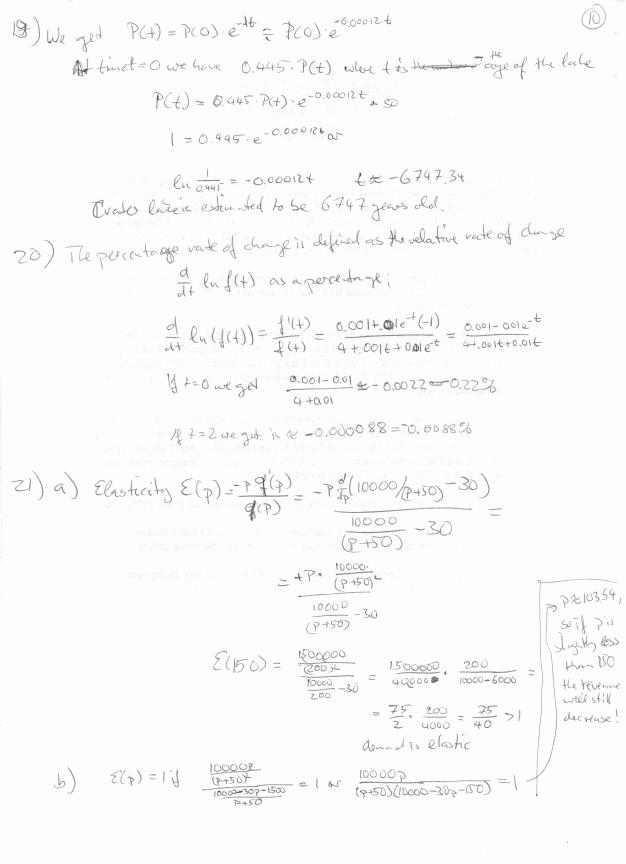 10
19) We get P(t) = P(0)·e^-λt = P(0)·e^-0.00012t
At time t=0 we have 0.445·P(t) where t is the age of the lake
P(t) = 0.445·P(t)·e^-0.00012t so
1 = 0.445·e^-0.00012t or
ln 1/0.445 = -0.00012t t ≈ -6747.34
Crater lake is estimated to be 6747 years old.
20) The percentage rate of change is defined as the relative rate of change
d/dt ln f(t) as a percentage;
d/dt ln(f(t)) = f'(t)/f(t) = 0.001+.01e^-t(-1)/4+.001t+0.01e^-t = 0.001-0.01e^-t/4+.001t+0.01t
If t=0 we get 0.001-0.01/4+0.01 ≈ -0.0022 = -0.22%
If t=2 we get ≈ -0.000088 = -0.0088%
21) a) Elasticity E(p) = -p q'(p)/q(p) = -p d/dp(10000/(p+50) -30)/10000/(p+50) -30 =
= +p · 10000/(p+50)²/10000/(p+50) -30
E(150) = 1500000/(200)²/10000/200 -30 = 1500000/40000 · 200/10000-6000 =
= 75/2 · 200/4000 = 75/40 > 1
demand is elastic
b) E(p) = 1 if 10000p/(p+50)²/10000-30p-1500/p+50 = 1 or 10000p/(p+50)(10000-30p-150) = 1
→ p≈103.54,
so if p is
slightly less
than 150
the revenue
will still
decrease!